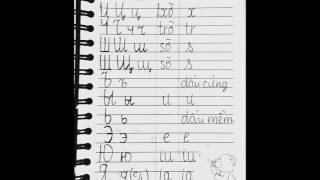 Ц Ц ц ц txờ x
Ч Ч ч ч trờ tr
Ш Ш ш sờ s
Щ Щ щ щ sờ s
Ъ ъ dấu cứng
Ы ы ư ư
Ь ь dấu mềm
Э э e e
Ю ю iu iu
Я я ia ia